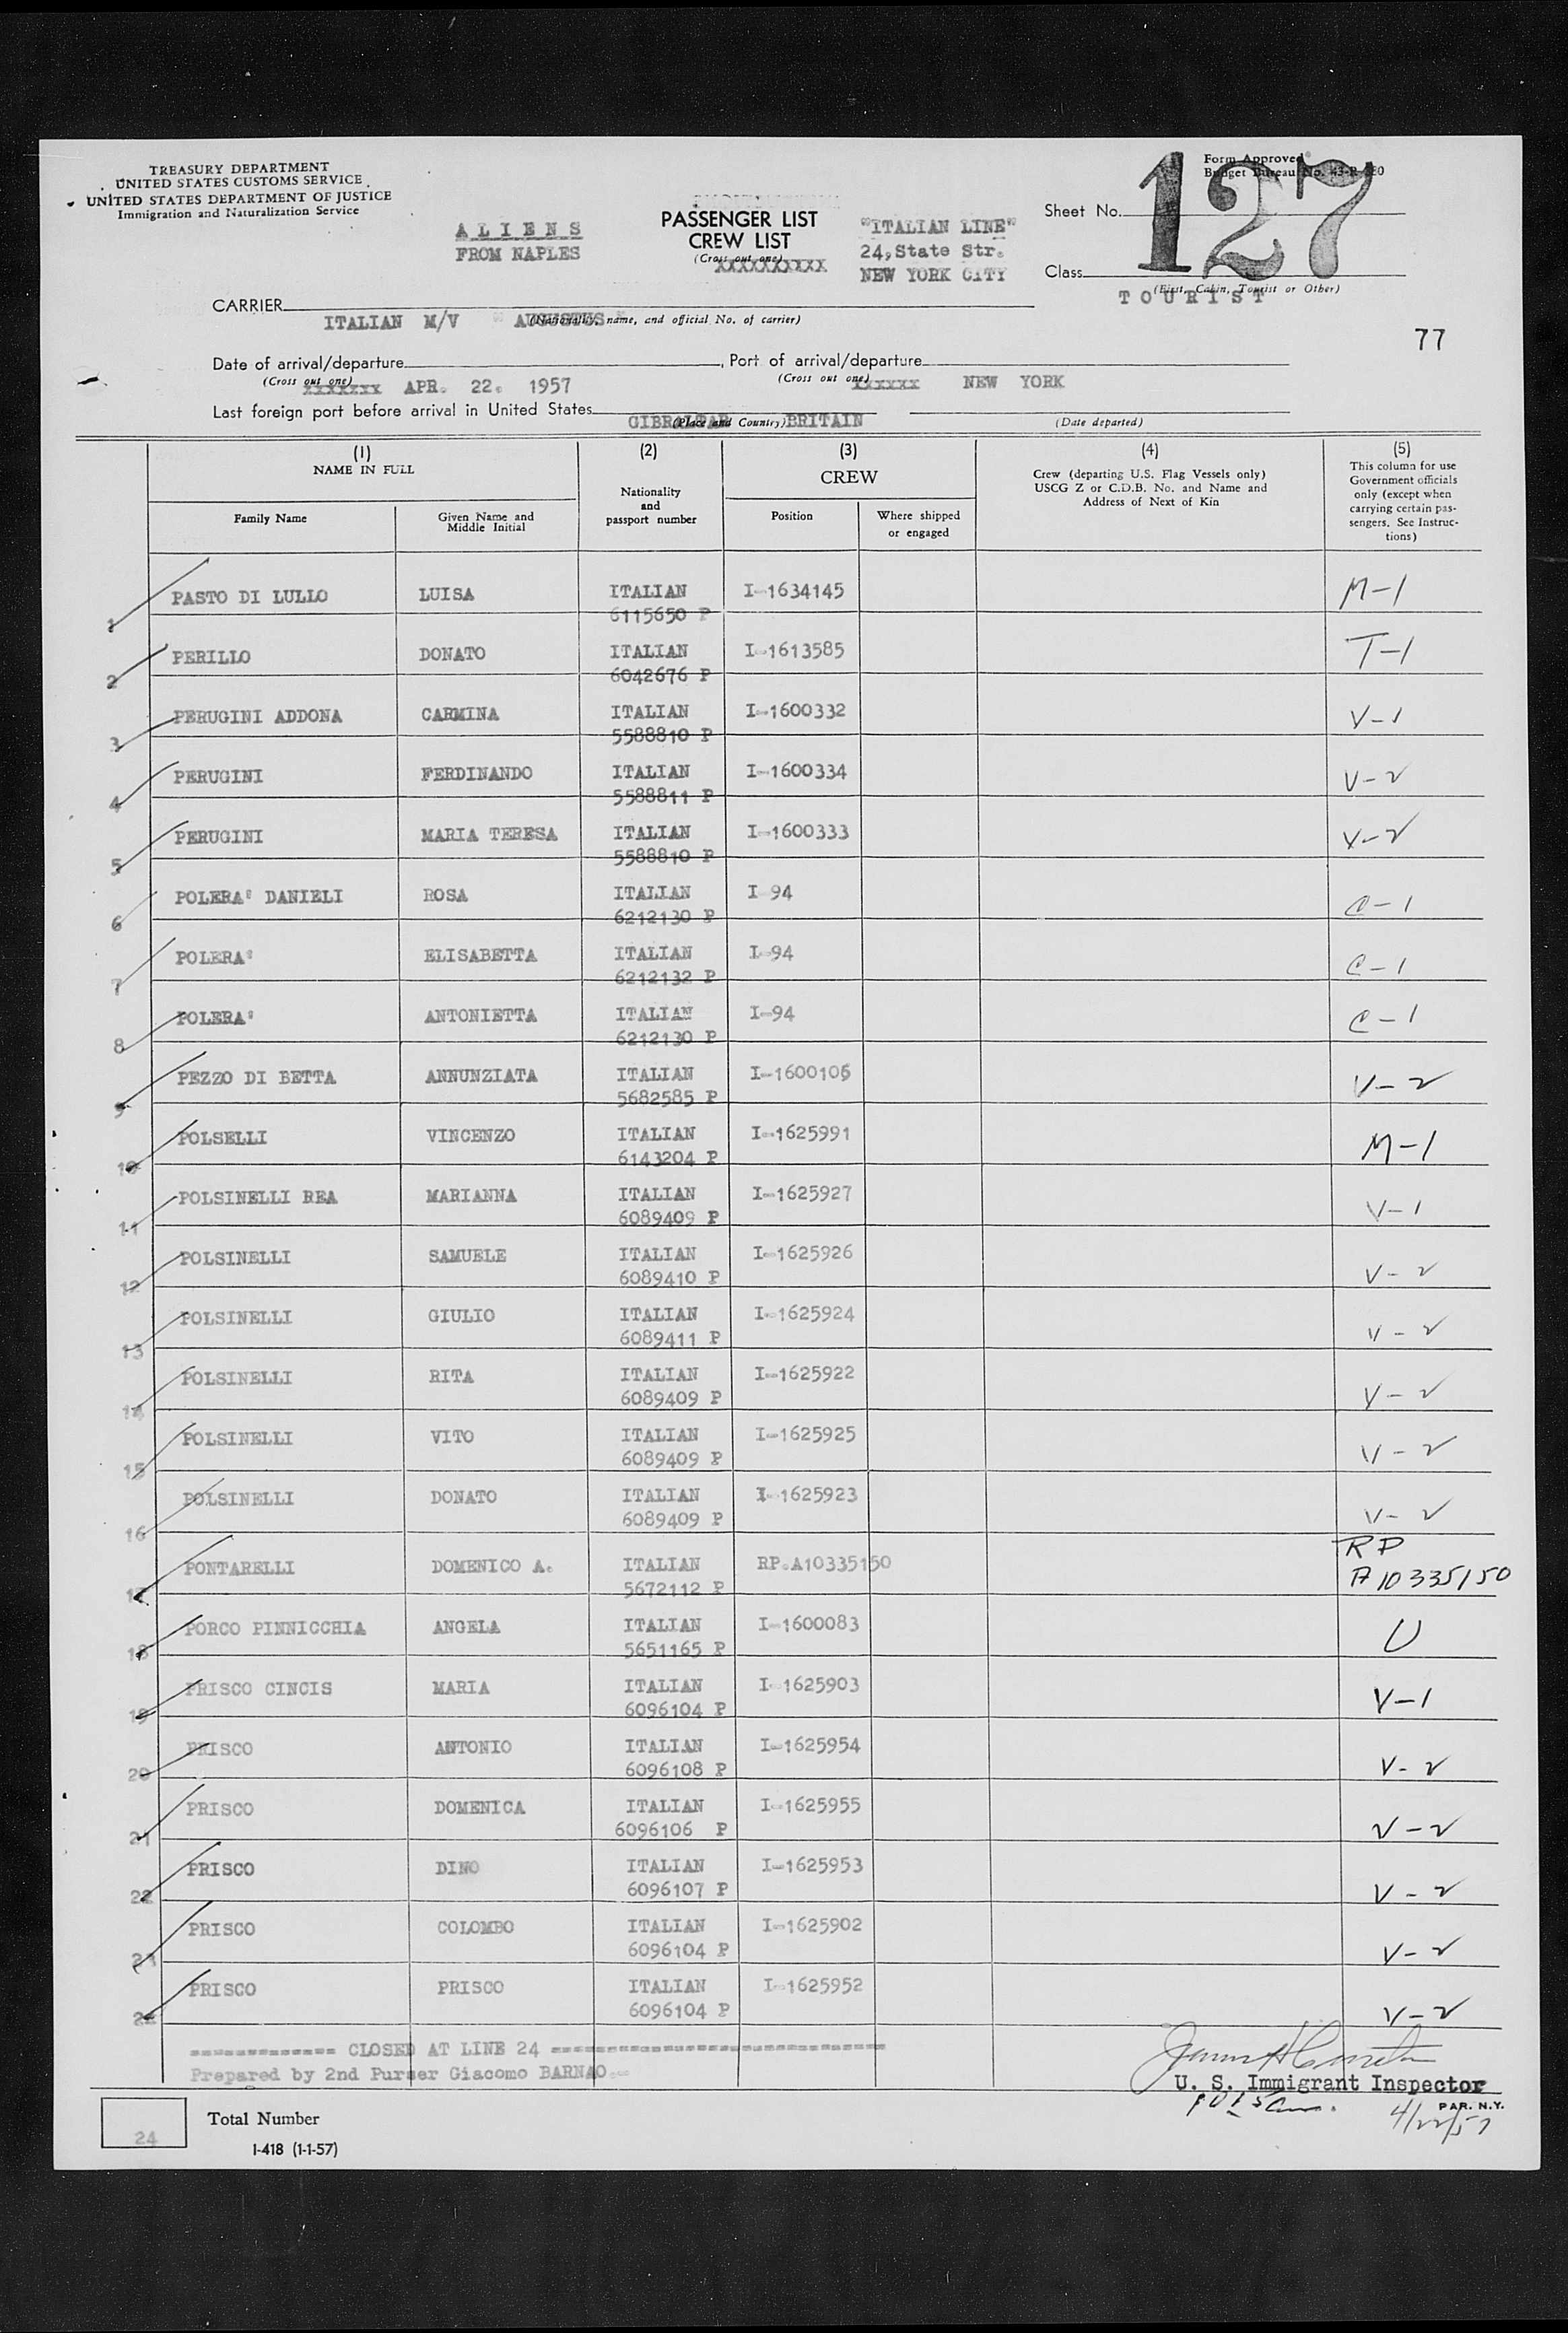 TREASURY DEPARTMENT
UNITED STATES CUSTOMS SERVICE
UNITED STATES DEPARTMENT OF JUSTICE
Immigration and Naturalization Service
ALIENS
FROM NAPLES
PASSENGER LIST
CREW LIST
(Cross out one) XXXXXXXXXX
"ITALIAN LINE"
24,State Str.
NEW YORK CITY
Form Approved
Budget Bureau No.
Sheet No. 127
Class
(First, Cabin, Tourist or Other)
TOURIST
CARRIER
ITALIAN M/V "AUGUSTUS"
(Nationality, name, and official No. of carrier)
77
Date of arrival/departure , Port of arrival/departure
(Cross out one) xxxxxxx APR. 22. 1957 (Cross out one) xxxxxx NEW YORK
Last foreign port before arrival in United States
GIBRALTAR BRITAIN (Place and Country) (Date departed)
(1) (2) (3) (4) (5)
NAME IN FULL
Family Name
Given Name and Middle Initial
Nationality and passport number
CREW
Position
Where shipped or engaged
Crew (departing U.S. Flag Vessels only)
USCG Z or C.D.B. No. and Name and
Address of Next of Kin
This column for use
Government officials
only (except when
carrying certain pas-
sengers. See Instruc-
tions)
1 PASTO DI LULLO LUISA ITALIAN I-1634145 M-1
6115650 P
2 PERILLO DONATO ITALIAN I-1613585 T-1
6042676 P
3 PERUGINI ADDONA CARMINA ITALIAN I-1600332 V-1
5588810 P
4 PERUGINI FERDINANDO ITALIAN I-1600334 V-2
5588811 P
5 PERUGINI MARIA TERESA ITALIAN I-1600333 V-2
5588810 P
6 POLERA' DANIELI ROSA ITALIAN I-94 C-1
6212130 P
7 POLERA' ELISABETTA ITALIAN I-94 C-1
6212132 P
8 POLERA' ANTONIETTA ITALIAN I-94 C-1
6212130 P
9 PEZZO DI BETTA ANNUNZIATA ITALIAN I-1600106 V-2
5682585 P
10 POLSELLI VINCENZO ITALIAN I-1625991 M-1
6143204 P
11 POLSINELLI REA MARIANNA ITALIAN I-1625927 V-1
6089409 P
12 POLSINELLI SAMUELE ITALIAN I-1625926 V-2
6089410 P
13 POLSINELLI GIULIO ITALIAN I-1625924 V-2
6089411 P
14 POLSINELLI RITA ITALIAN I-1625922 V-2
6089409 P
15 POLSINELLI VITO ITALIAN I-1625925 V-2
6089409 P
16 POLSINELLI DONATO ITALIAN I-1625923 V-2
6089409 P
17 PONTARELLI DOMENICO A. ITALIAN RP.A10335150 RP
5672112 P A10335150
18 PORCO PINNICCHIA ANGELA ITALIAN I-1600083 U
5651165 P
19 PRISCO CINCIS MARIA ITALIAN I-1625903 V-1
6096104 P
20 PRISCO ANTONIO ITALIAN I-1625954 V-2
6096108 P
21 PRISCO DOMENICA ITALIAN I-1625955 V-2
6096106 P
22 PRISCO DINO ITALIAN I-1625953 V-2
6096107 P
23 PRISCO COLOMBO ITALIAN I-1625902 V-2
6096104 P
24 PRISCO PRISCO ITALIAN I-1625952 V-2
6096104 P
============= CLOSED AT LINE 24 =============================
Prepared by 2nd Purser Giacomo BARNAO.
U. S. Immigrant Inspector
PAR. N.Y.
4/22/57
24 Total Number
I-418 (1-1-57)